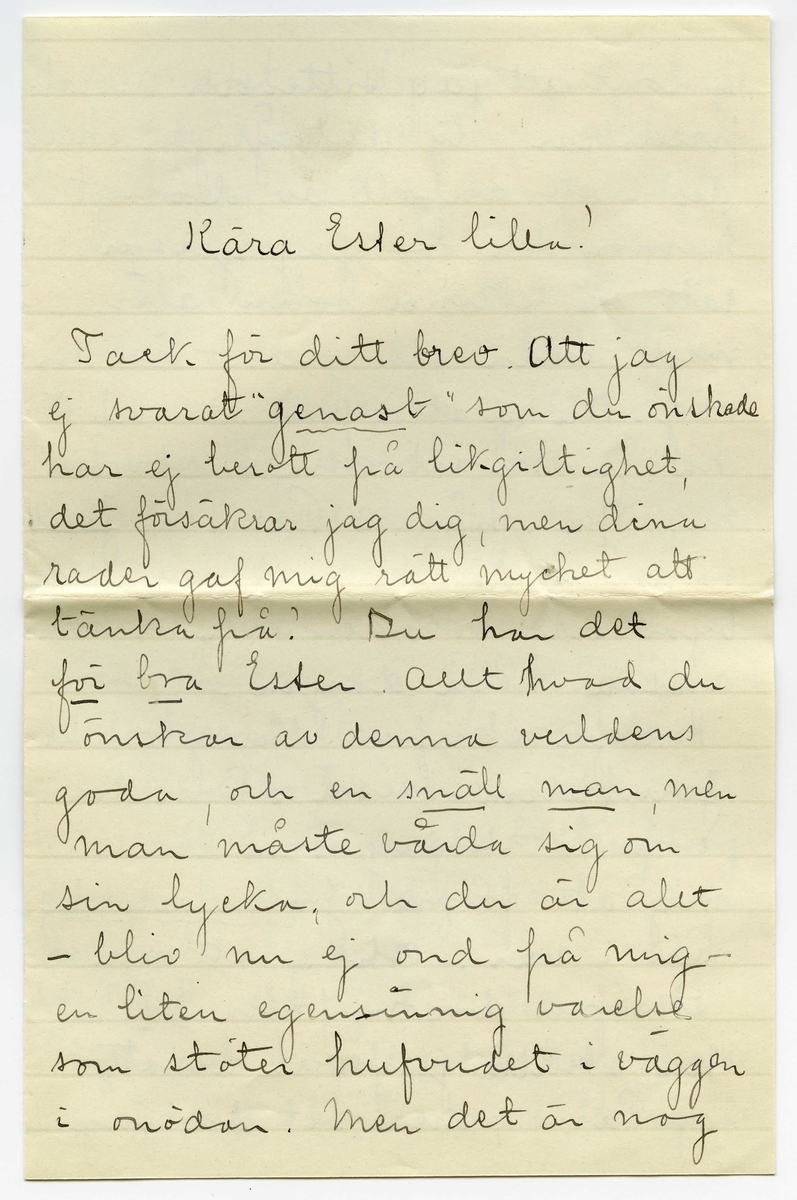 Kära Ester lilla!
Tack för ditt brev. Att jag
ej svarat "genast" som du önskade
har ej berott på likgiltighet,
det försäkrar jag dig, men dina
rader gaf mig rätt mycket att
tänka på! Du har det
för bra Ester. Allt hvad du
önskar av denna verldens
goda, och en snäll man, men
man måste vårda sig om
sin lycka, och du är alet
- bliv nu ej ond på mig -
en liten egensinnig varelse
som stöter hufvudet i väggen
i onödan. Men det är nog